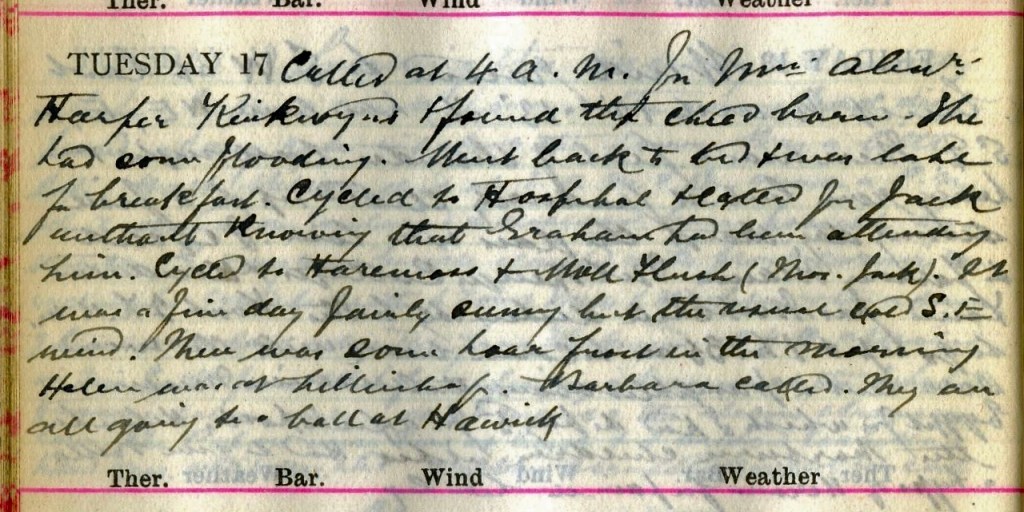 Ther. Bar. Wind Weather
TUESDAY 17 Called at 4 A.M. for Mrs Alexr.
Harper &found the child born. She
had some flooding. Went back to bed &was late
for breakfast. Cycled to Hospital & for Jack
without Knowing that Graham had been attending
him. Cycled to Haremoss & Flush (Thos. Jack). It
was a fine day fairly sunny but the usual cold S.E
wind. There was some hoar frost in the morning
Helen was at. Barbara called. They are
all going to a ball at Hawick
Ther. Bar. Wind Weather